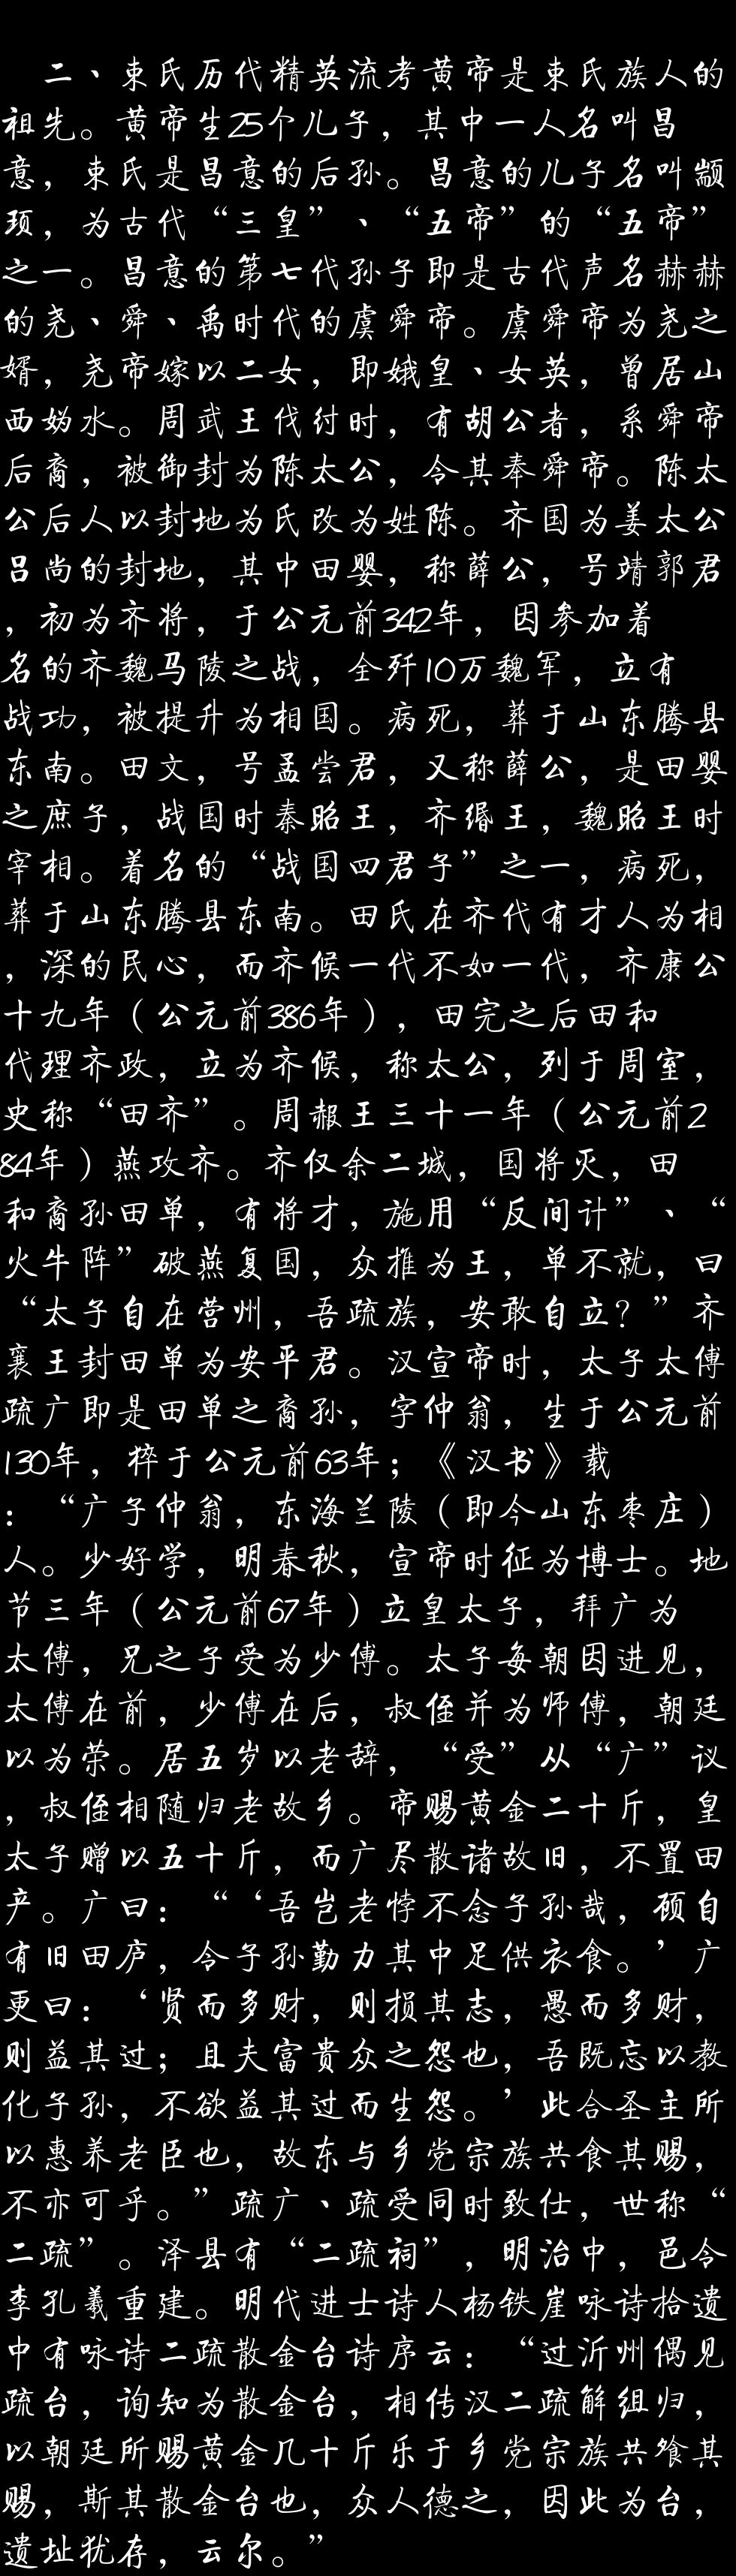 二、束氏历代精英流考黄帝是束氏族人的
祖先。黄帝生25个儿子，其中一人名叫昌
意，束氏是昌意的后孙。昌意的儿子名叫颛
顼，为古代“三皇”、“五帝”的“五帝”
之一。昌意的第七代孙子即是古代声名赫赫
的尧、舜、禹时代的虞舜帝。虞舜帝为尧之
婿，尧帝嫁以二女，即娥皇、女英，曾居山
西妫水。周武王伐纣时，有胡公者，系舜帝
后裔，被御封为陈太公，令其奉舜帝。陈太
公后人以封地为氏改为姓陈。齐国为姜太公
吕尚的封地，其中田婴，称薛公，号靖郭君
，初为齐将，于公元前342年，因参加着
名的齐魏马陵之战，全歼10万魏军，立有
战功，被提升为相国。病死，葬于山东腾县
东南。田文，号孟尝君，又称薛公，是田婴
之庶子，战国时秦昭王，齐缗王，魏昭王时
宰相。着名的“战国四君子”之一，病死，
葬于山东腾县东南。田氏在齐代有才人为相
，深的民心，而齐候一代不如一代，齐康公
十九年（公元前386年），田完之后田和
代理齐政，立为齐候，称太公，列于周室，
史称“田齐”。周赧王三十一年（公元前2
84年）燕攻齐。齐仅余二城，国将灭，田
和裔孙田单，有将才，施用“反间计”、“
火牛阵”破燕复国，众推为王，单不就，曰
“太子自在营州，吾疏族，安敢自立？”齐
襄王封田单为安平君。汉宣帝时，太子太傅
疏广即是田单之裔孙，字仲翁，生于公元前
130年，猝于公元前63年；《汉书》载
：“广子仲翁，东海兰陵（即今山东枣庄）
人。少好学，明春秋，宣帝时征为博士。地
节三年（公元前67年）立皇太子，拜广为
太傅，兄之子受为少傅。太子每朝因进见，
太傅在前，少傅在后，叔侄并为师傅，朝廷
以为荣。居五岁以老辞，“受”从“广”议
，叔侄相随归老故乡。帝赐黄金二十斤，皇
太子赠以五十斤，而广尽散诸故旧，不置田
产。广曰：“‘吾岂老悖不念子孙哉，顾自
有旧田庐，令子孙勤力其中足供衣食。’广
更曰：‘贤而多财，则损其志，愚而多财，
则益其过；且夫富贵众之怨也，吾既忘以教
化子孙，不欲益其过而生怨。’此合圣主所
以惠养老臣也，故东与乡党宗族共食其赐，
不亦可乎。”疏广、疏受同时致仕，世称“
二疏”。泽县有“二疏祠”，明治中，邑令
李孔羲重建。明代进士诗人杨铁崖咏诗拾遗
中有咏诗二疏散金台诗序云：“过沂州偶见
疏台，询知为散金台，相传汉二疏解组归，
以朝廷所赐黄金几十斤乐于乡党宗族共飨其
赐，斯其散金台也，众人德之，因此为台，
遗址犹存，云尔。”